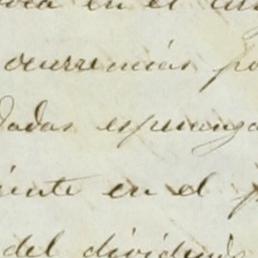 en el
ocurrencias po
dadas esperanza
iente en el p
del dividendo